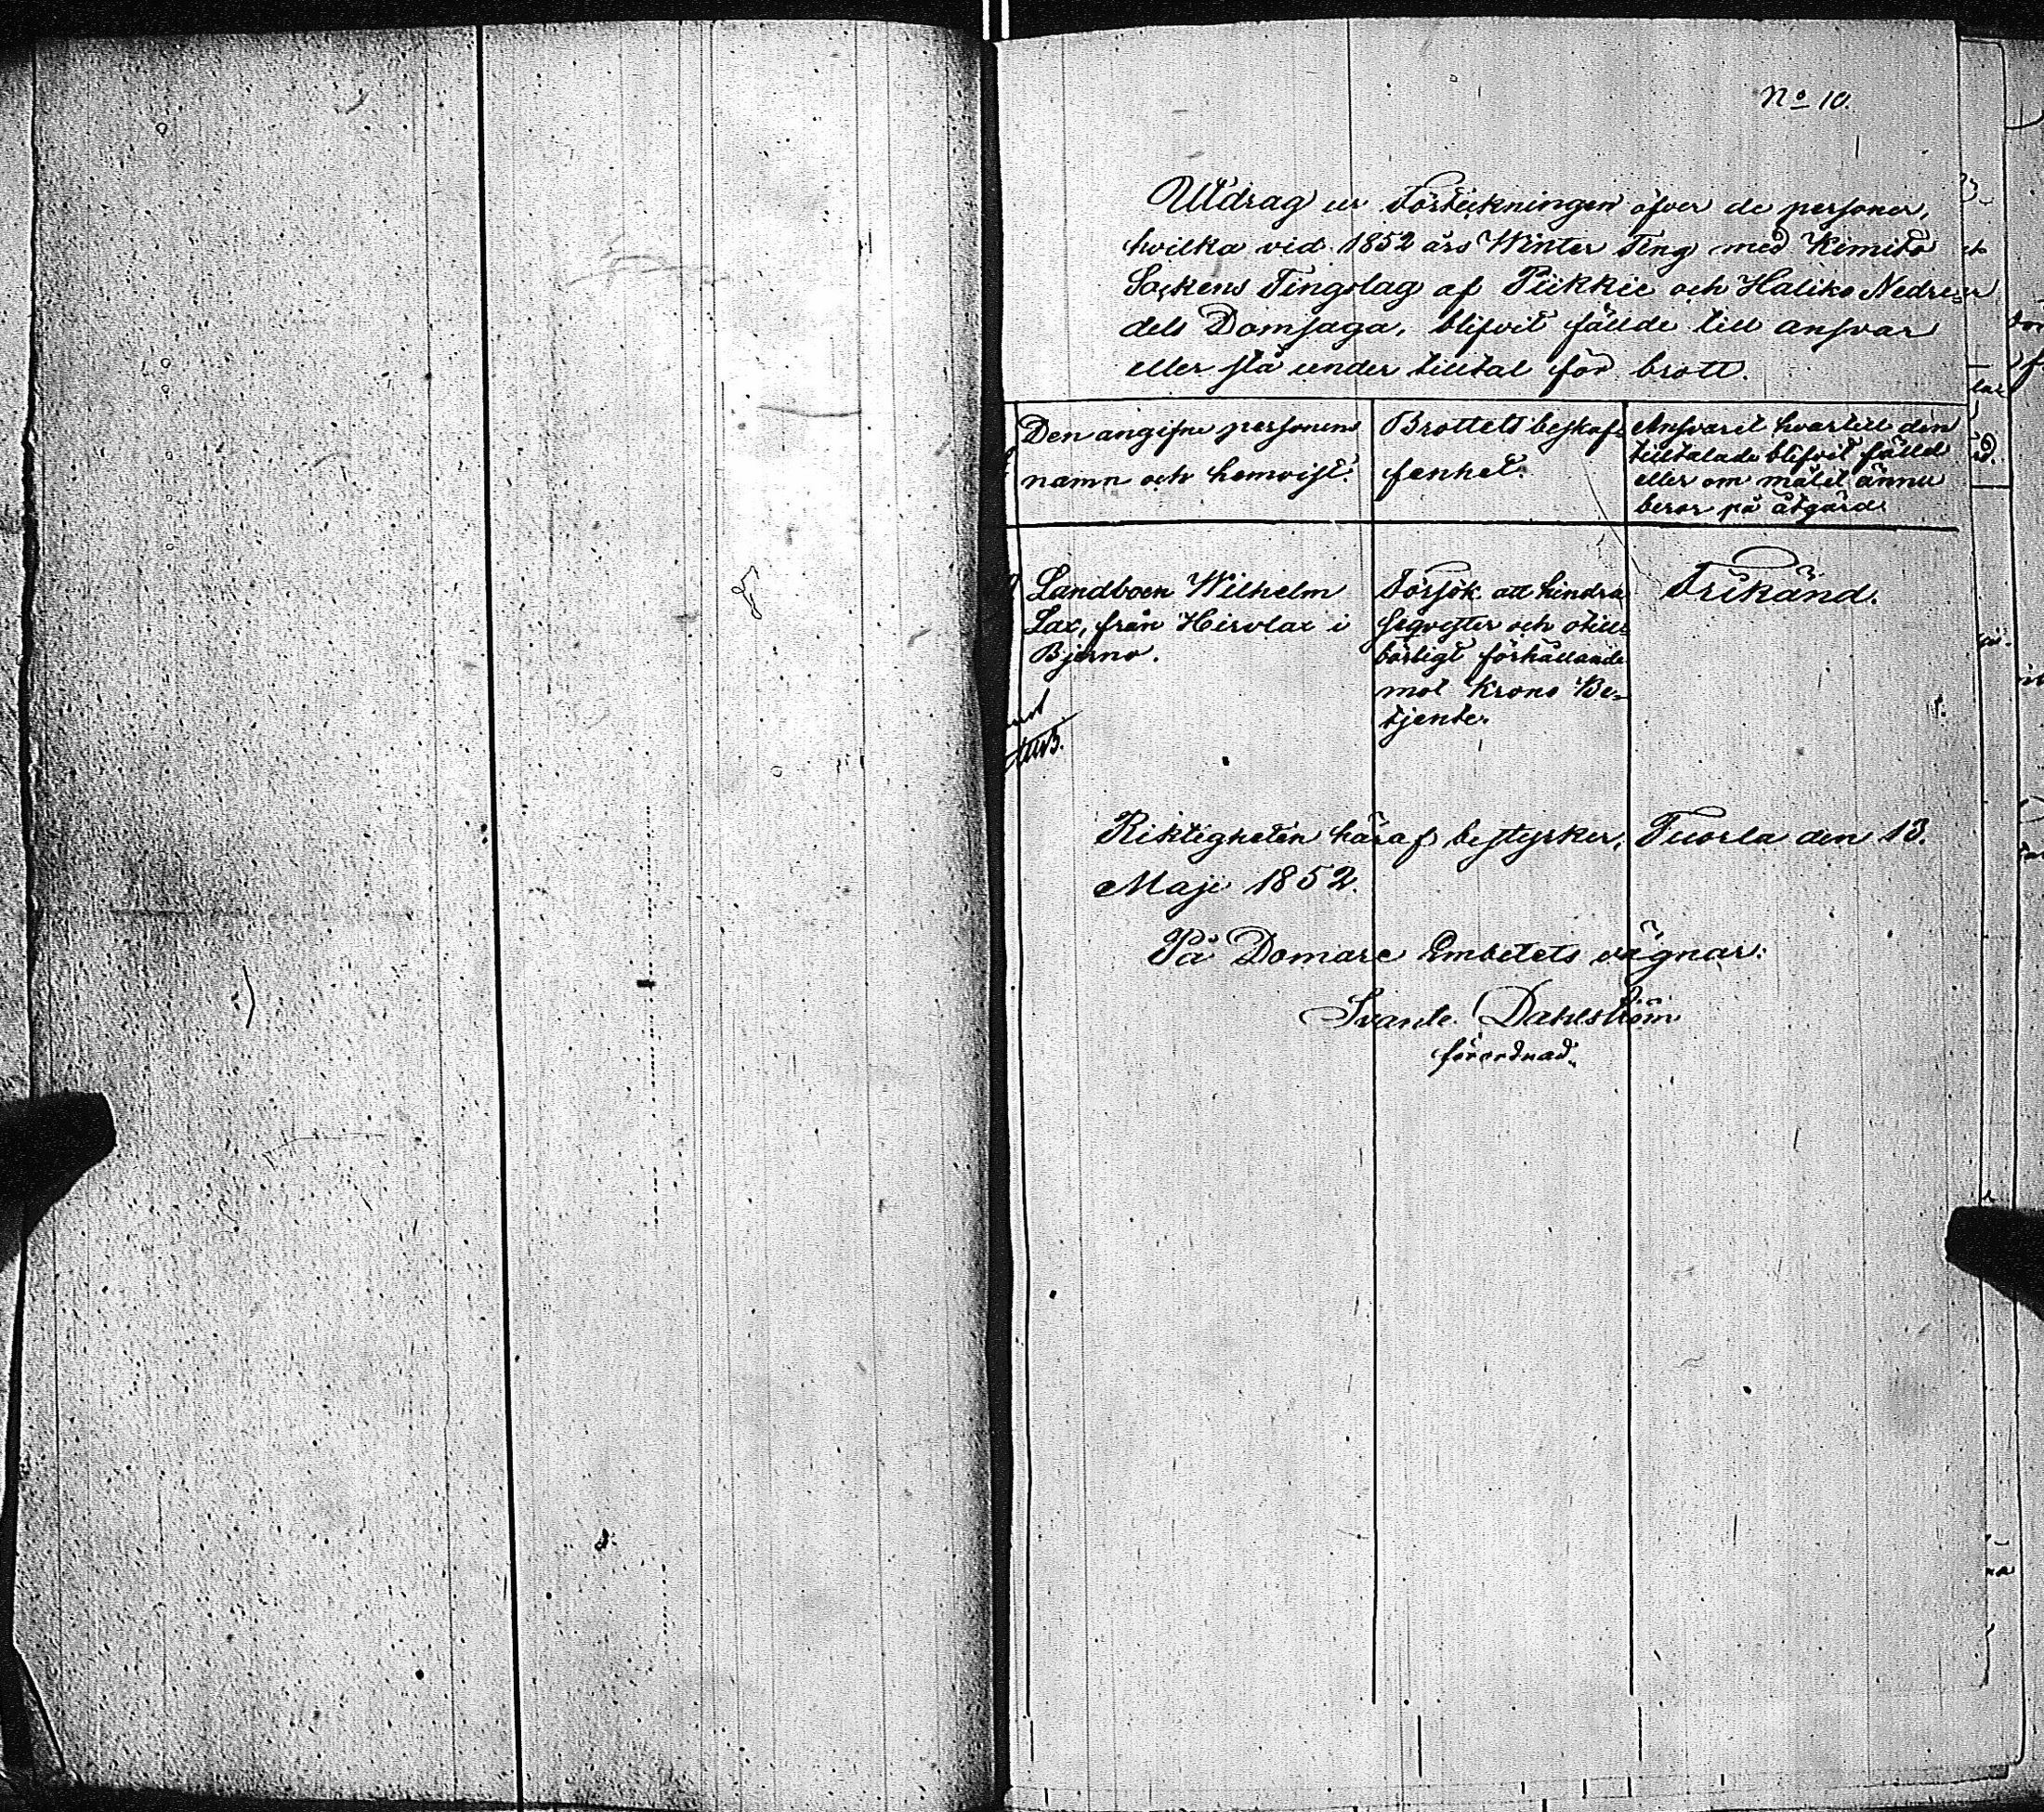 No 10.
Utdrag ur Förteckningen öfver de personer,
hvilka vid 1852 års Winter Ting med Kimito
Sockens Tingslag af Piikkie och Haliko Nedre
dels Domsaga, blifvit fällde till ansvar
eller stå under tilltal för brott.
Den angifne personens
namn och hemvist.
Brottets beskaf-
fenhet.
Ansvaret hvartill den
tilltalade blifvit fälld
eller om målet ännu
beror på åtgärd.
Landboen Wilhelm
Lax, från Hirvlax i
Bjerno.
Försök att hindra
seqvester och otill-
börligt förhållande
mot Krono Be-
tjente.
Frikänd.
Riktigheten häraf bestyrker, Tuorla den 13.
Maji 1852.
På Domare Embetets vägnar:
Svante Dahlström
förordnad.